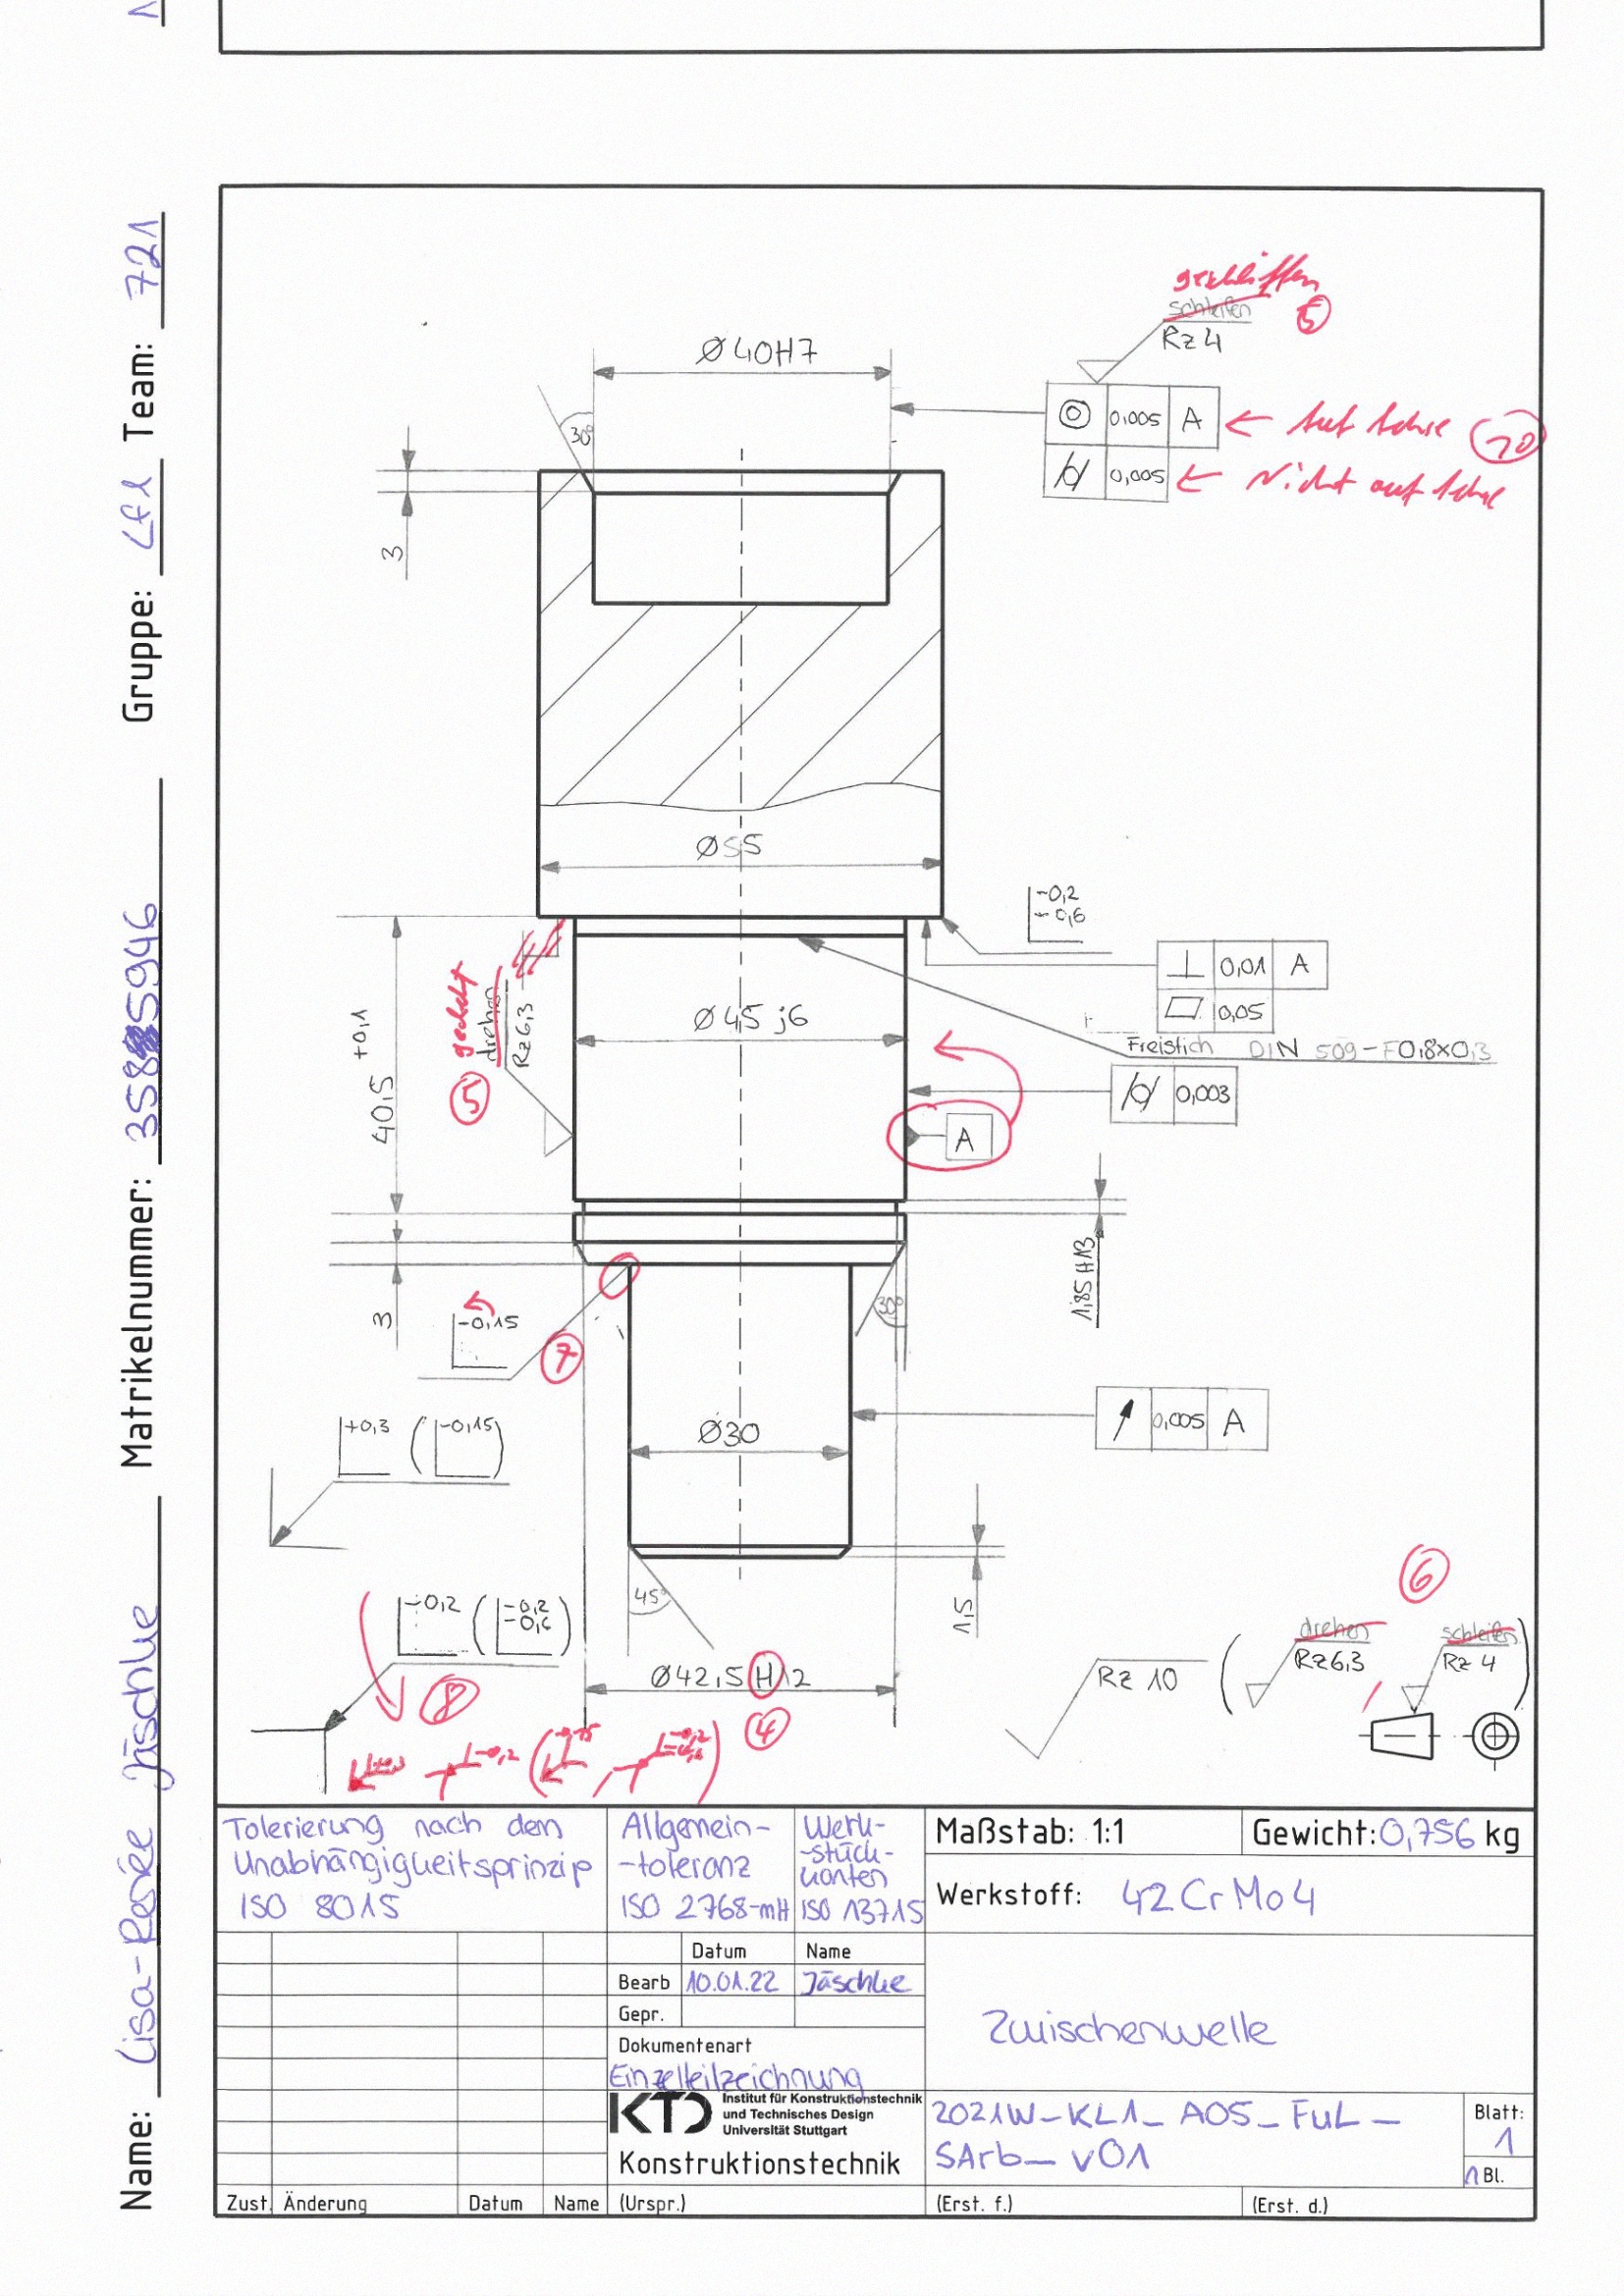 Name: Lisa-Renée Jäschke Matrikelnummer: 3585946 Gruppe: LfL Team: 721
geschliffen
schleifen
Rz 4
5
Ø 40H7
30°
0,005 A
← Auf Achse
10
0,005
← Nicht auf Achse
3
Ø55
-0,2
-0,6
⊥ 0,01 A
0,05
Freistich DIN 509-F0,8x0,3
gedreht
drehen
Rz 6,3
5
Ø 45 j6
40,5 +0,1
0,003
A
1,85 H13
3
30°
-0,15
7
+0,3 (-0,15)
Ø30
0,005 A
45°
1,5
-0,2 (-0,2
-0,6)
8
Ø42,5 H12
4
6
Rz 10 (drehen
Rz 6,3
schleifen
Rz 4)
+0,3 -0,2 (-0,15 / -0,2
-0,6)
Tolerierung nach dem
Unabhängigkeitsprinzip
ISO 8015
Allgemein-
-toleranz
ISO 2768-mH
Werk-
-stück-
kanten
ISO 13715
Maßstab: 1:1
Gewicht: 0,756 kg
Werkstoff: 42CrMo4
Datum Name
Bearb 10.01.22 Jäschke
Gepr.
Dokumentenart
Einzelteilzeichnung
Zwischenwelle
KTD Institut für Konstruktionstechnik
und Technisches Design
Universität Stuttgart
Konstruktionstechnik
2021W_KL1_A05_FuL_
SArb_v01
Blatt:
1
1 Bl.
Zust. Änderung Datum Name (Urspr.) (Erst. f.) (Erst. d.)